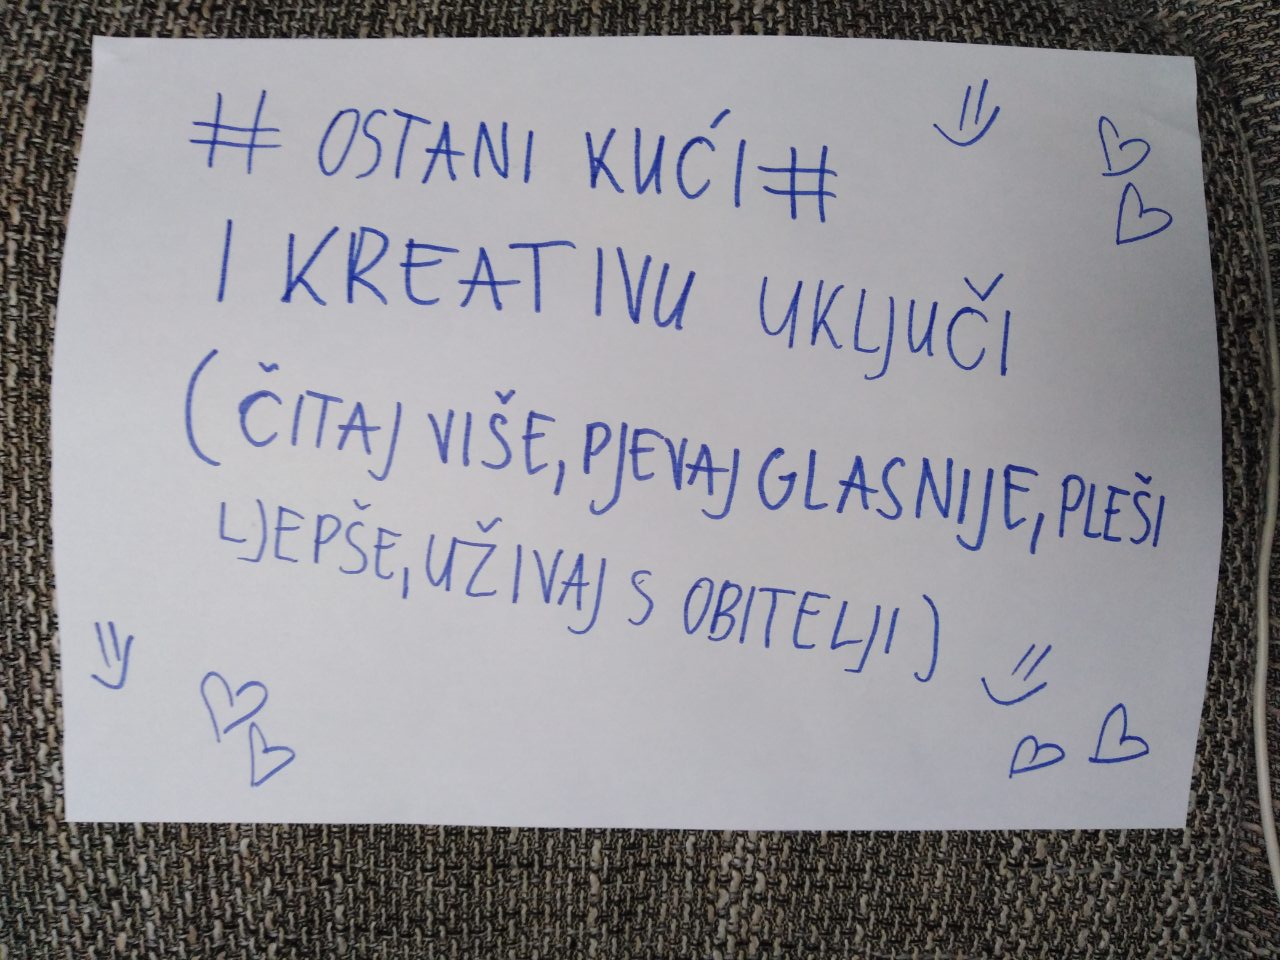 # OSTANI KUĆI #
I KREATIVU UKLJUČI
(ČITAJ VIŠE, PJEVAJ GLASNIJE, PLEŠI
LJEPŠE, UŽIVAJ S OBITELJI)